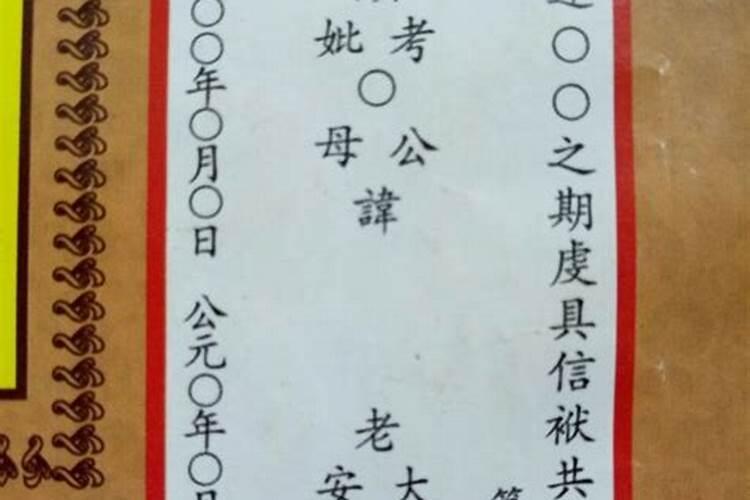 〇〇之期虔具信袱共
考妣
〇
公母
諱
老
大安
〇〇年〇月〇日 公元〇年〇